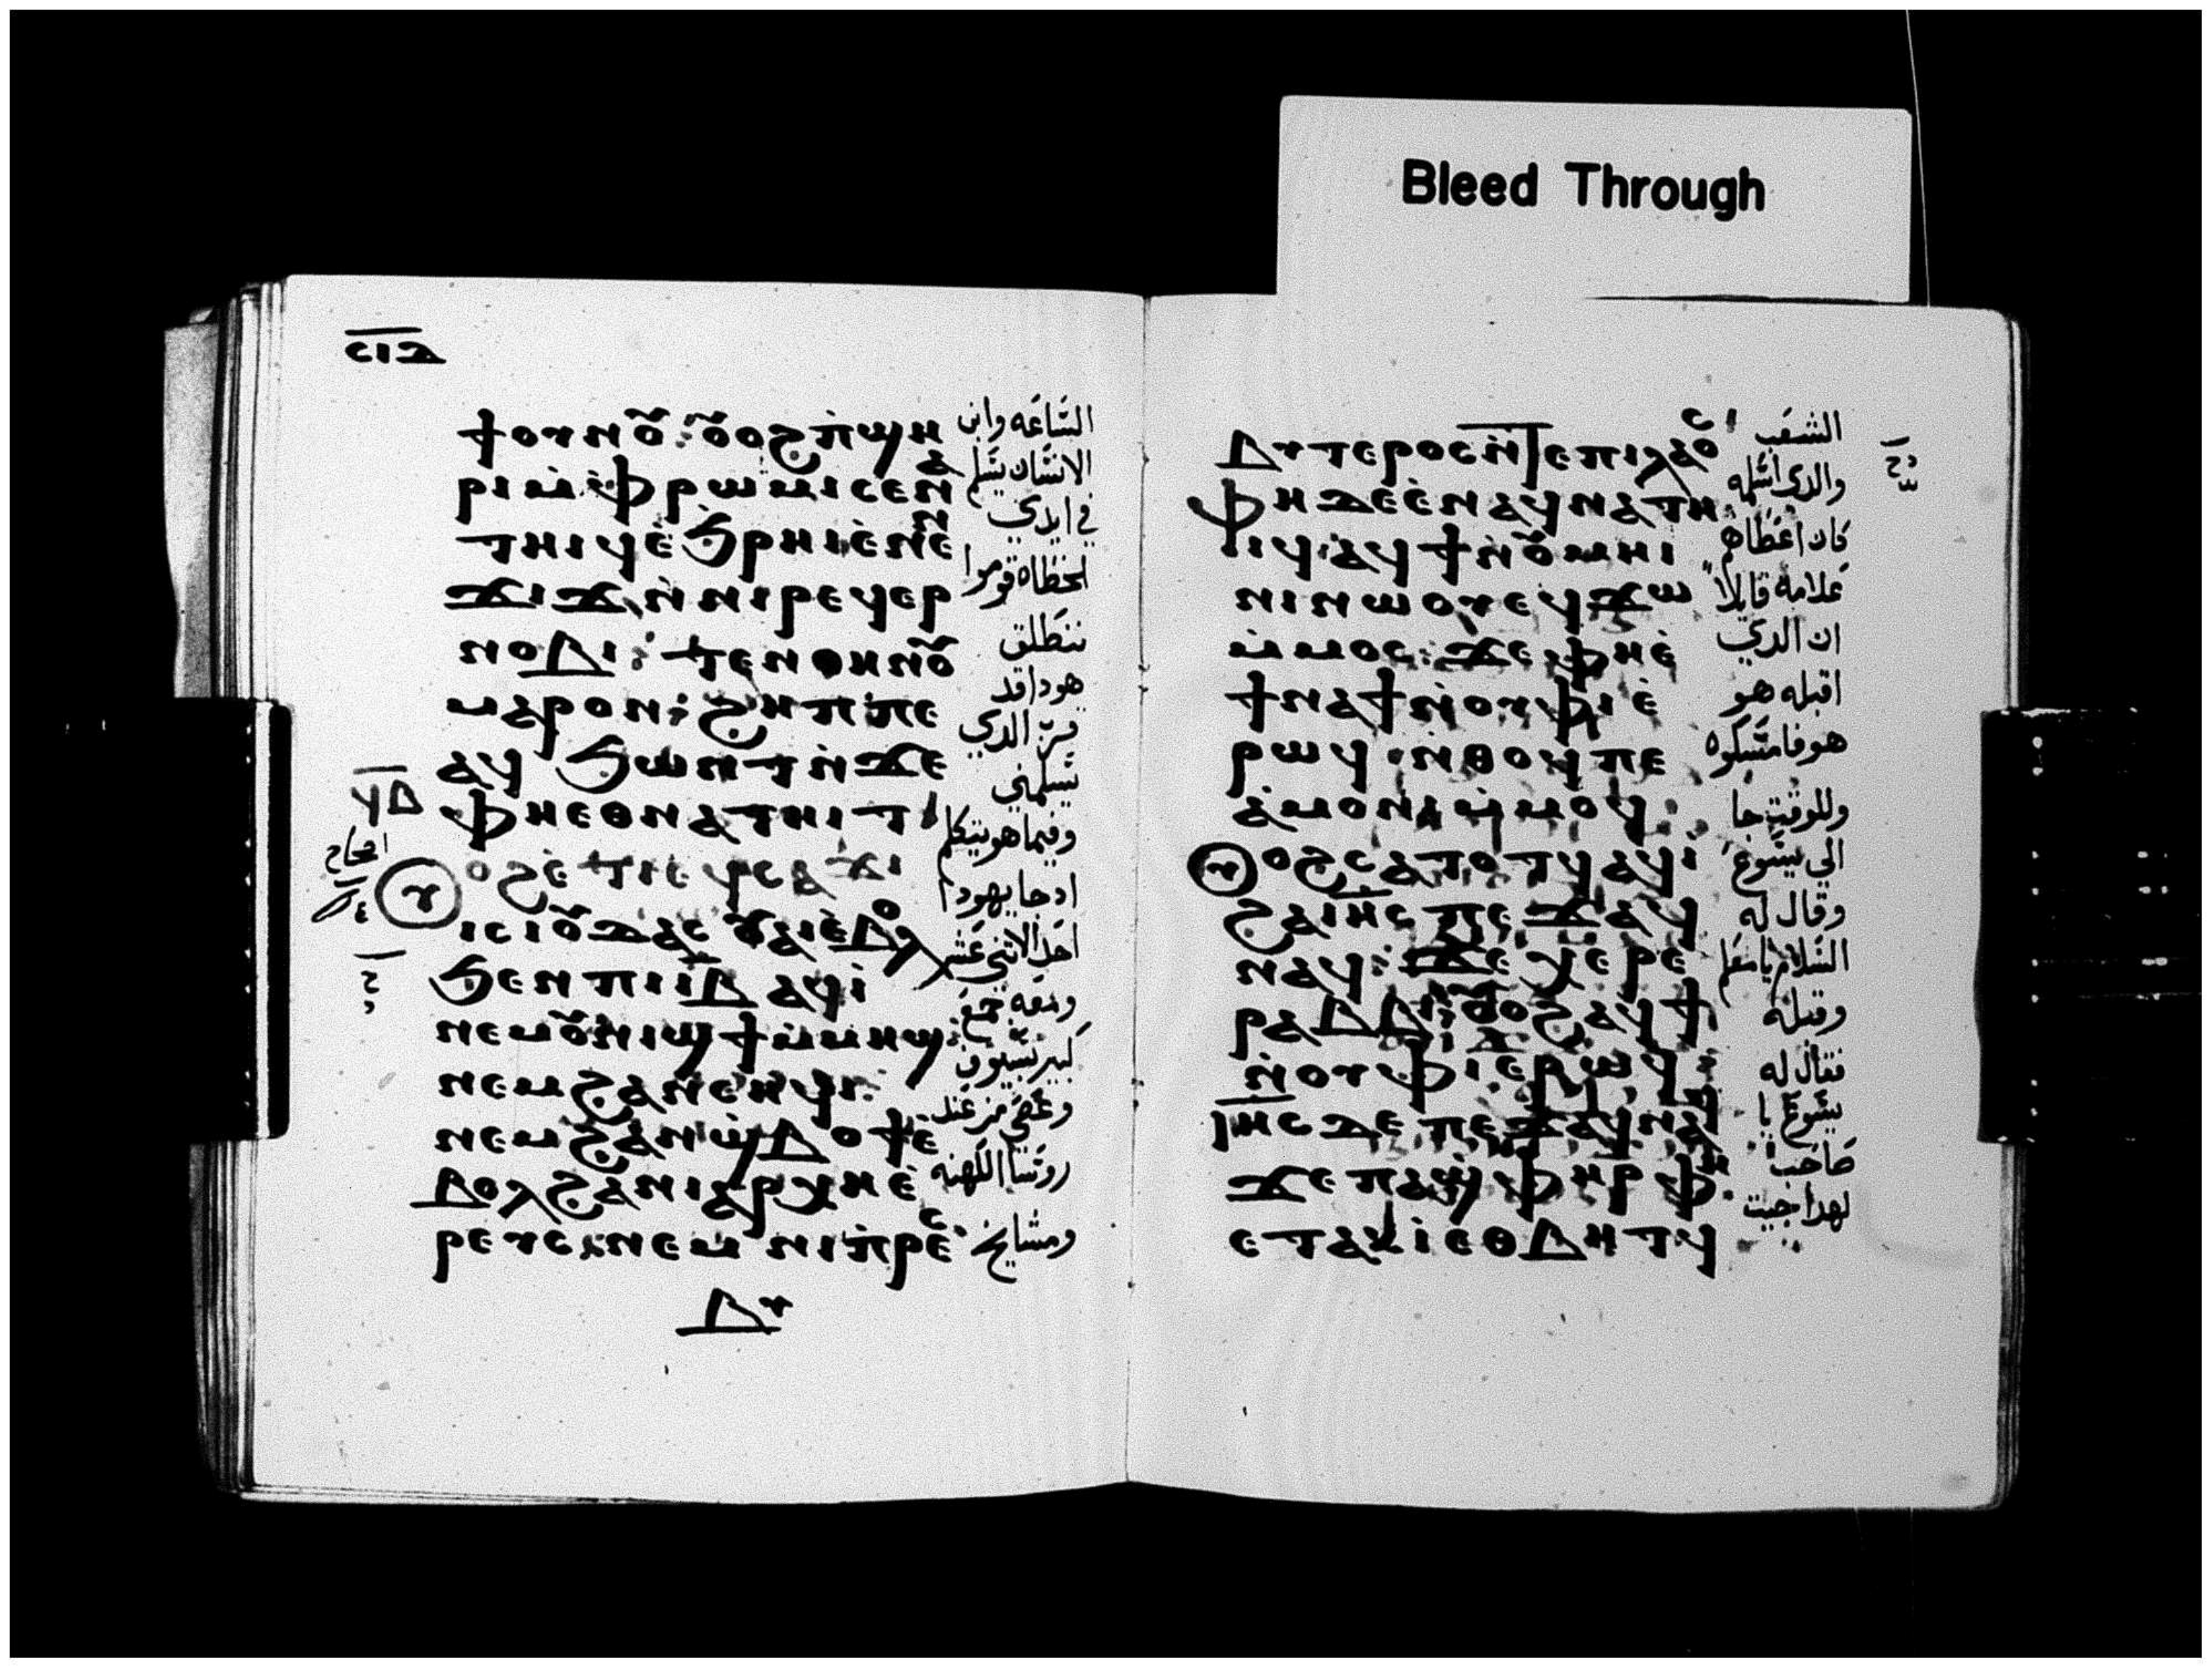 ⲥⲓⲇ
ϯⲟⲩⲛⲟⲩ: ⲟⲩⲟϩ ⲡ̀ϣⲏ
ⲣⲓ ⲙ̀ⲫⲣⲱⲙⲓ ⲥⲉⲛⲁ
ⲧⲏⲓϥ ⲉ̀ϧⲣⲏⲓ ⲉ̀ⲛⲉⲛ
ϫⲓϫ ⲛ̀ⲛⲓⲣⲉϥⲉⲣ
ⲛⲟⲃⲓ: ⲧⲉⲛⲑⲏⲛⲟⲩ
ⲙⲁⲣⲟⲛ: ϩⲏⲡⲡⲉ
ⲁϥϧⲱⲛⲧ ⲛ̀ϫⲉ
ⲫⲏⲉⲑⲛⲁⲧⲏⲓⲧ
ⲩ ⲟϩ ⲉ̀ⲧⲓ ⲉϥⲥⲁϫⲓ
ⲓⲥ ⲓⲟⲩⲇⲁⲥ ⲟⲩⲁⲓ ⲉ̀ⲃⲟⲗ
ϧⲉⲛ ⲡⲓⲓ̅ⲃ̅ ⲁϥⲓ̀
ⲛⲉⲙ ⲟⲩⲛⲓϣϯ ⲙ̀ⲙⲏϣ:
ⲛⲉⲙ ϩⲁⲛⲥⲏϥⲓ
ⲛⲉⲙ ϩⲁⲛϣ̀ⲃⲟϯ ⲉ̀
ⲃⲟⲗ ϩⲁ ⲛⲓⲁⲣⲭⲏⲉ̀
ⲣⲉⲩⲥ ⲛⲉⲙ ⲛⲓⲡ̀ⲣⲉⲥ
ⲃⲩ
الساعه وابن
الانسان يسلم
في ايدي
الخطاه قوموا
ننطلق
هودا قد
قرب الدي
يسلمني
وفيما هو يتكلم
ادجا يهودا
احد الاثني عشر
ومعه جمع
كبير بسيوف
وعصي من عند
روسا الكهنه
ومشايخ
Bleed Through
ⲃⲩⲧⲉⲣⲟⲥ ⲛ̀ⲧⲉ ⲡⲓⲗⲁⲟⲥ
ⲫⲏ ⲇⲉ ⲉ̀ⲛⲁϥⲛⲁⲧⲏ
ⲓϥ ⲁϥϯ ⲛ̀ⲟⲩⲙⲏⲓ
ⲛⲓ ⲛⲱⲟⲩ ⲉϥϫⲱ
ⲙ̀ⲙⲟⲥ: ϫⲉ ⲫⲏⲉ̀
ϯⲛⲁϯ ⲛ̀ⲟⲩⲫⲓ ⲉ̀
ⲣⲱϥ ⲛ̀ⲑⲟϥ ⲡⲉ
ⲁ̀ⲙⲟⲛⲓ ⲙ̀ⲙⲟϥ
ⲩ ⲟϩ ⲥⲁⲧⲟⲧϥ ⲁϥⲓ̀
ϩⲁ ⲓⲏⲥ ⲡⲉϫⲁϥ
ⲛⲁϥ: ϫⲉ ⲭⲉⲣⲉ
ⲣⲁⲃⲃⲓ: ⲟⲩⲟϩ ⲁϥϯ
ⲛ̀ⲟⲩⲫⲓ ⲉⲣⲱϥ:
ⲓⲏⲥ ⲇⲉ ⲡⲉϫⲁϥ ⲛⲁϥ
ϫⲉ ⲡⲁϣ̀ⲫⲏⲣ ⲫⲏ
ⲉⲧⲁⲕⲓ̀ ⲉⲑⲃⲏⲧϥ
الشعب
والدي اسلمه
كان اعطاهم
علامة قايلا
ان الدي
اقبله هو
هو فامسكوه
وللوقت جا
الي يسوع
وقال له
السلام يا معلم
وقبله
فقال له
يسوع يا
صاحب
لهدا جيت